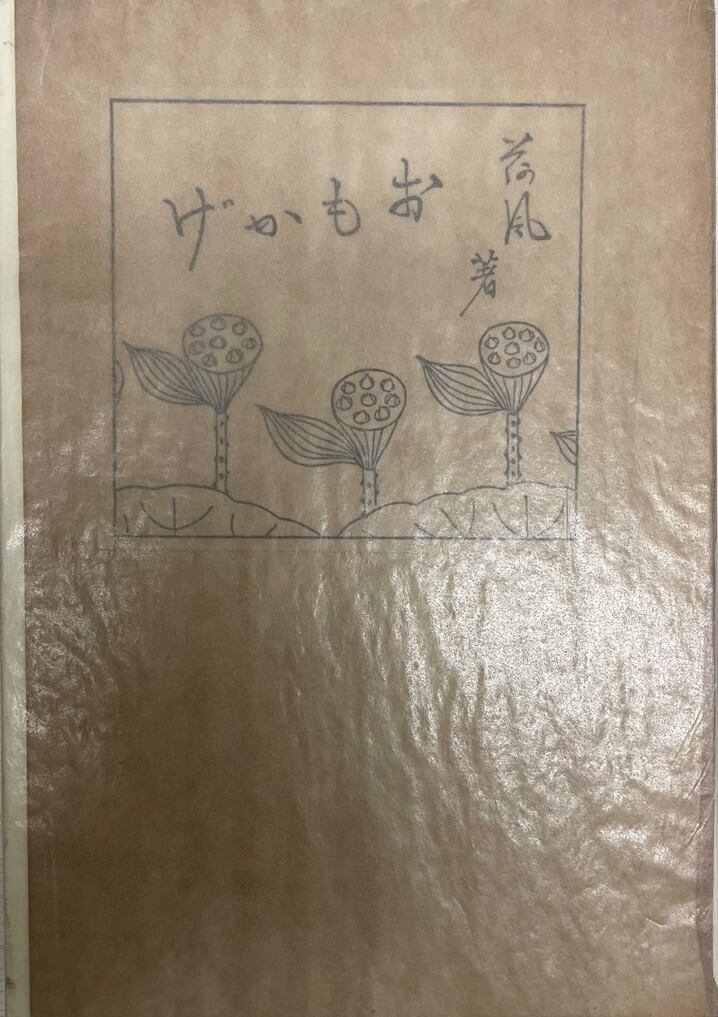 荷風
著
おもかげ